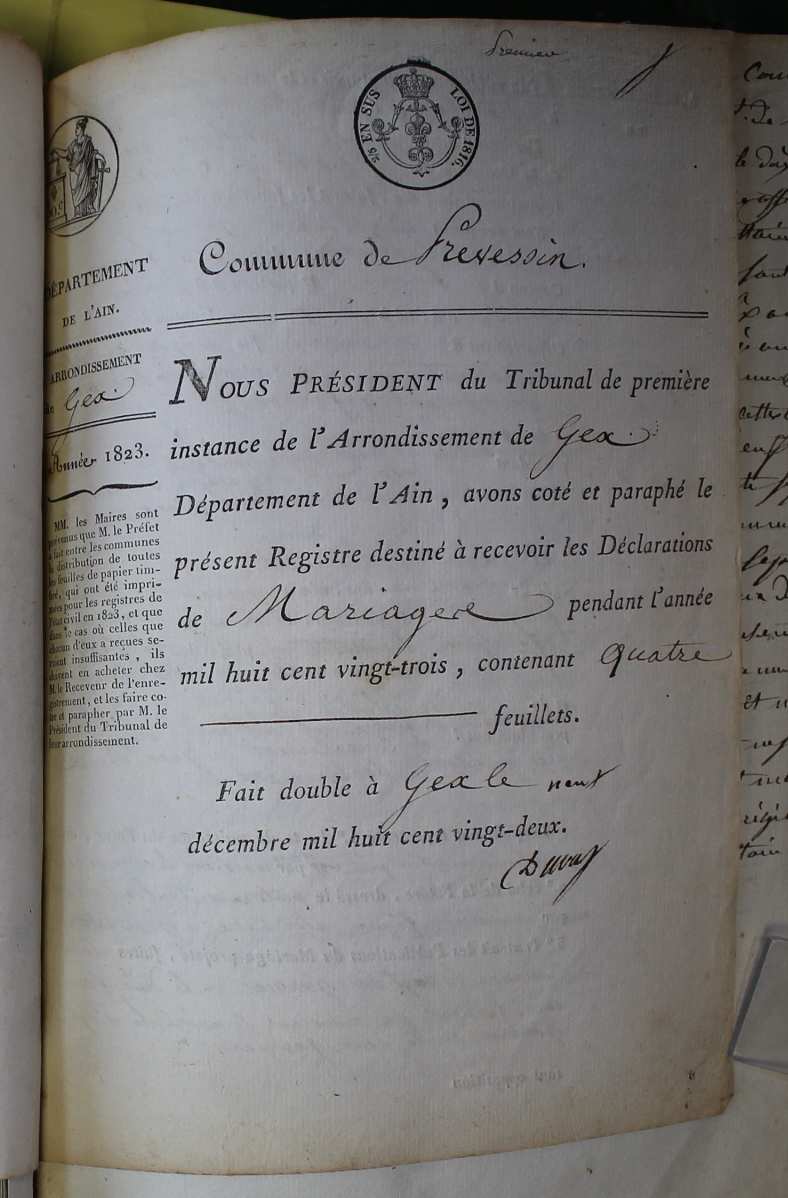 Premier
2/5 EN SUS LOI DE 1816.
Commune de Prevessin.
DÉPARTEMENT
DE L'AIN.
ARRONDISSEMENT
de Gex.
Année 1823.
MM. les Maires sont
prévenus que M. le Préfet
a fait entre les communes
la distribution de toutes
les feuilles de papier tim-
bré, qui ont été impri-
mées pour les registres de
l'état civil en 1823, et que
dans le cas où celles que
chacun d'eux a reçues se-
roient insuffisantes, ils
doivent en acheter chez
M. le Receveur de l'enre-
gistrement, et les faire co-
ter et parapher par M. le
Président du Tribunal de
leur arrondissement.
NOUS PRÉSIDENT du Tribunal de première
instance de l'Arrondissement de Gex
Département de l'Ain, avons coté et paraphé le
présent Registre destiné à recevoir les Déclarations
de Mariages pendant l'année
mil huit cent vingt-trois, contenant quatre
feuillets.
Fait double à Gex le neuf
décembre mil huit cent vingt-deux.